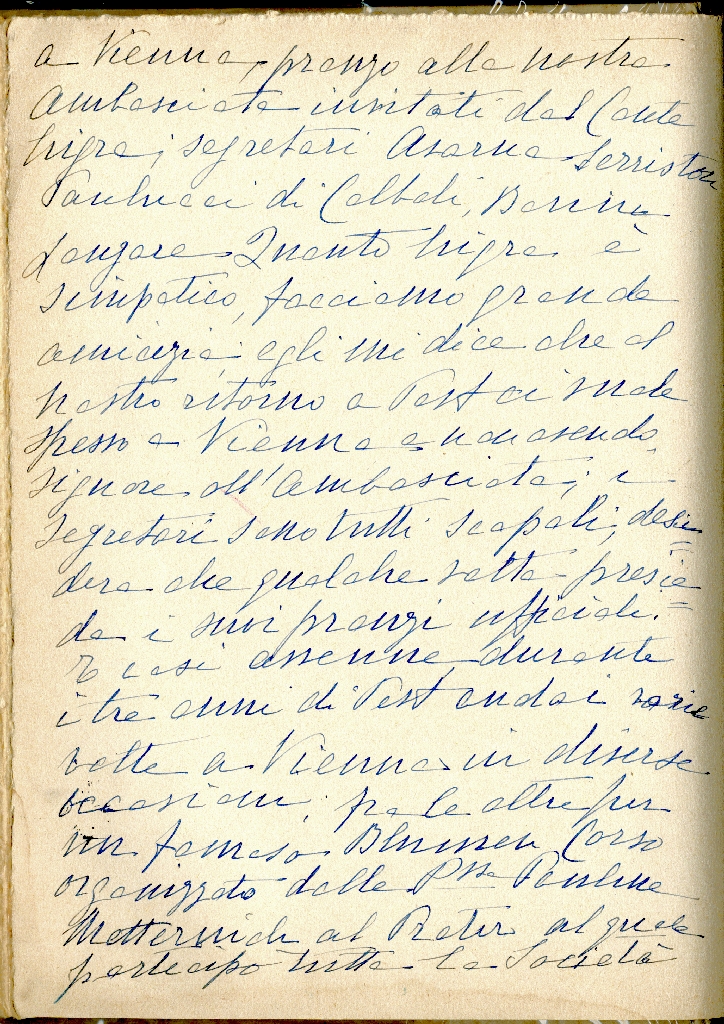 a Vienna, pranzo alla nostra
Ambasciata invitati dal Conte
Nigra; segretari Avarna Serristori
Paulucci di Calboli, Bonin
Longare. Quanto Nigra è
simpatico, facciamo grande
amicizia; egli mi dice che al
nostro ritorno a Pest ci vuole
spesso a Vienna e non avendo
signore all'Ambasciata, i
segretari sono tutti scapoli, desi=
dera che qualche volta presie=
da i suoi pranzi ufficiali.
E così avvenne durante
i tre anni di Pest andai varie
volte a Vienna in diverse
occasioni, fra le altre per
un famoso Blumen Corso
organizzato dalla Pssa Pauline
Metternich al Prater al quale
partecipò tutta la Società